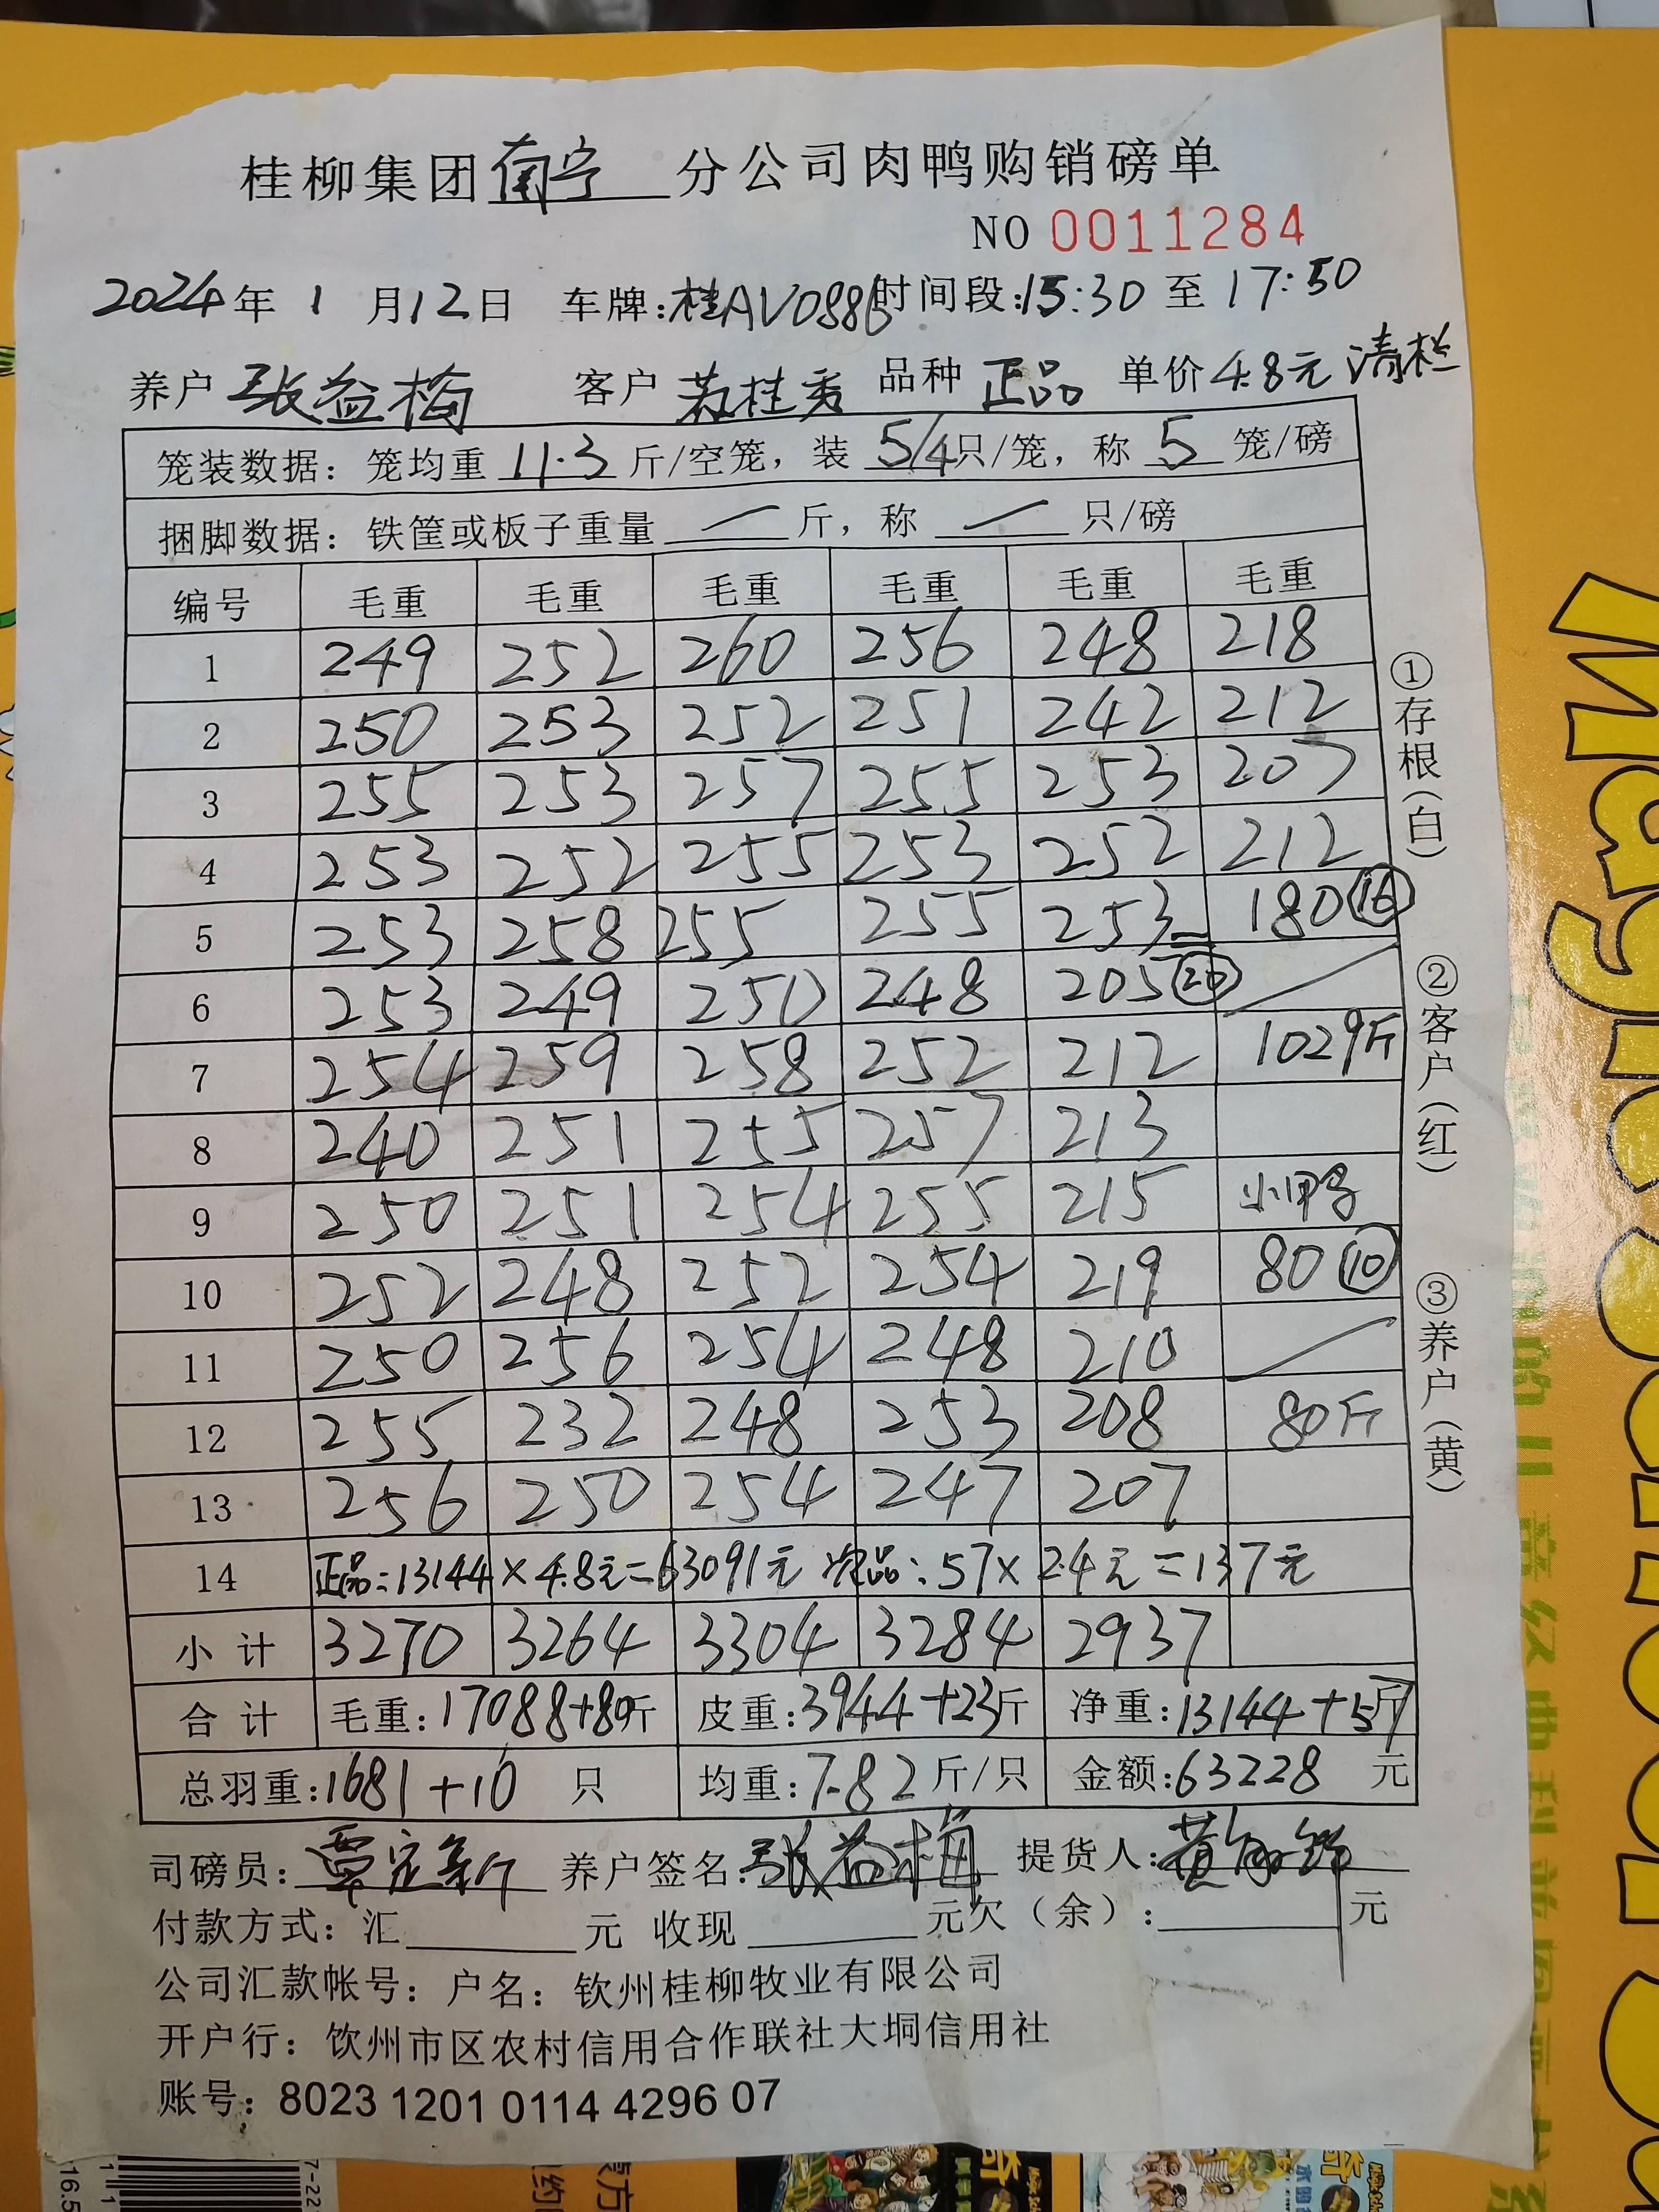 桂柳集团南宁分公司肉鸭购销磅单
NO 0011284
2024年 1 月12日 车牌:桂AV0886时间段:15:30 至 17:50
养户 张益梅 客户 苏桂秀 品种 正品 单价 4.8元 清栏
笼装数据: 笼均重 11.3 斤/空笼, 装 5/4只/笼, 称 5 笼/磅
捆脚数据: 铁筐或板子重量 — 斤, 称 — 只/磅
编号 毛重 毛重 毛重 毛重 毛重 毛重
1 249 252 260 256 248 218
2 250 253 252 251 242 212
3 255 253 257 255 253 207
4 253 252 255 253 252 212
5 253 258 255 255 253 180 ⑯
6 253 249 250 248 205 ⑳
7 254 259 258 252 212 1029斤
8 240 251 255 257 213
9 250 251 254 255 215 小鸭
10 252 248 252 254 219 80 ⑩
11 250 256 254 248 210
12 255 232 248 253 208 80斤
13 256 250 254 247 207
14 正品:13144×4.8元=63091元 次品:57×2.4元=137元
小计 3270 3264 3304 3284 2937
合计 毛重:17088+80斤 皮重:3944+23斤 净重:13144+57斤
总羽重:1681+10 只 均重:7.82斤/只 金额:63228 元
司磅员: 覃定新 养户签名:张益梅 提货人:
付款方式: 汇 元 收现 元欠(余): 元
公司汇款帐号: 户名: 钦州桂柳牧业有限公司
开户行: 饮州市区农村信用合作联社大垌信用社
账号: 8023 1201 0114 4296 07
①存根(白)
②客户(红)
③养户(黄)